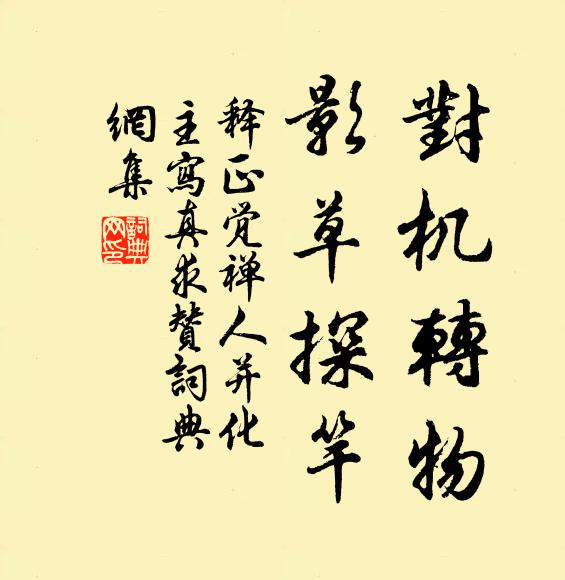 對机轉物
影草探竿
释正觉禅人并化
主寫真求贊詞典
網集
詞典
网印